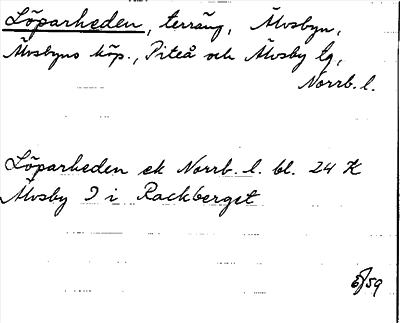 Löparheden, terräng, Älvsbyn,
Älvsbyns köp., Piteå och Älvsby tg,
Norrb. l.
Löparheden ek Norrb. l. bl. 24 K
Älvsby I i Rackberget
6/59